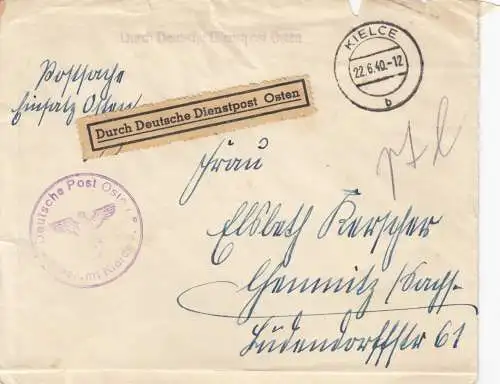 Durch Deutsche Dienstpost Osten
KIELCE
22.6.40.-12
b
Postsache
Einsatz Osten
Durch Deutsche Dienstpost Osten
Frau
Elsbeth Kerscher
Chemnitz /Sachs.
Ludendorffstr 61
Deutsche Post Osten
Kielce